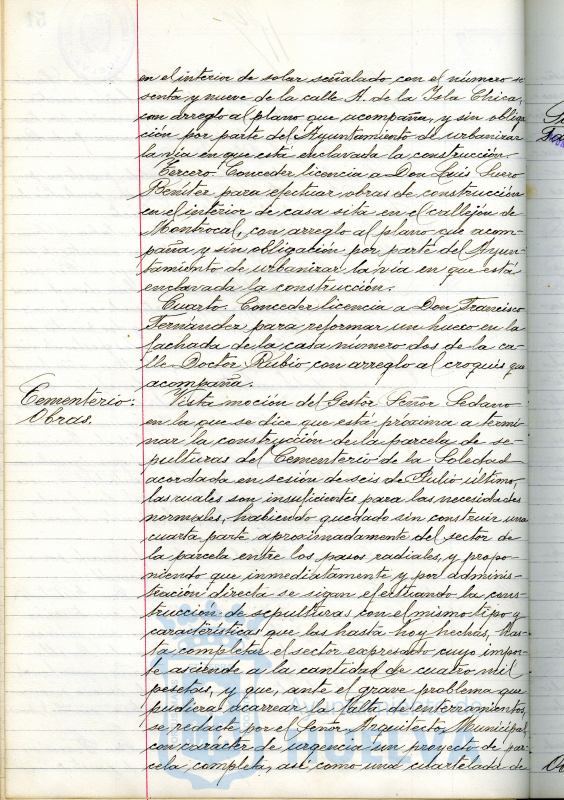 en el interior de solar señalado con el número se
senta y nueve de la calle A. de la Isla Chica,
con arreglo al plano que acompaña, y sin obliga
ción por parte del Ayuntamiento de urbanizar
la vía en que está enclavada la construcción.
Tercero. Conceder licencia a Don Luis Surro
Benitez para efectuar obras de construcción
en el interior de casa sita en el callejón de
Montrocal, con arreglo al plano que acom-
paña y sin obligación por parte del Ayun-
tamiento de urbanizar la vía en que está
enclavada la construcción.
Cuarto. Conceder licencia a Don Francisco
Fernández para reformar un hueco en la
fachada de la casa número dos de la ca-
lle Doctor Rubio con arreglo al croquis que
acompaña.
Cementerio:
Obras.
Vista moción del Gestor Señor Sedano
en la que se dice que está próxima a termi
nar la construcción de la parcela de se-
pulturas del Cementerio de la Soledad
acordada en sesión de seis de Julio último,
las cuales son insuficientes para las necesidades
normales, habiendo quedado sin construir una
cuarta parte aproximadamente del sector de
la parcela entre los pasos radiales, y propo-
niendo que inmediatamente y por adminis-
tración directa se sigan efectuando la cons-
trucción de sepulturas con el mismo tipo y
características que las hasta hoy hechas, has-
ta completar el sector expresado cuyo impor-
te asciende a la cantidad de cuatro mil
pesetas, y que, ante el grave problema que
pudiera acarrear la falta de enterramientos,
se redacte por el Señor Arquitecto Municipal
con carácter de urgencia un proyecto de par-
cela completa, así como una cuartelada de